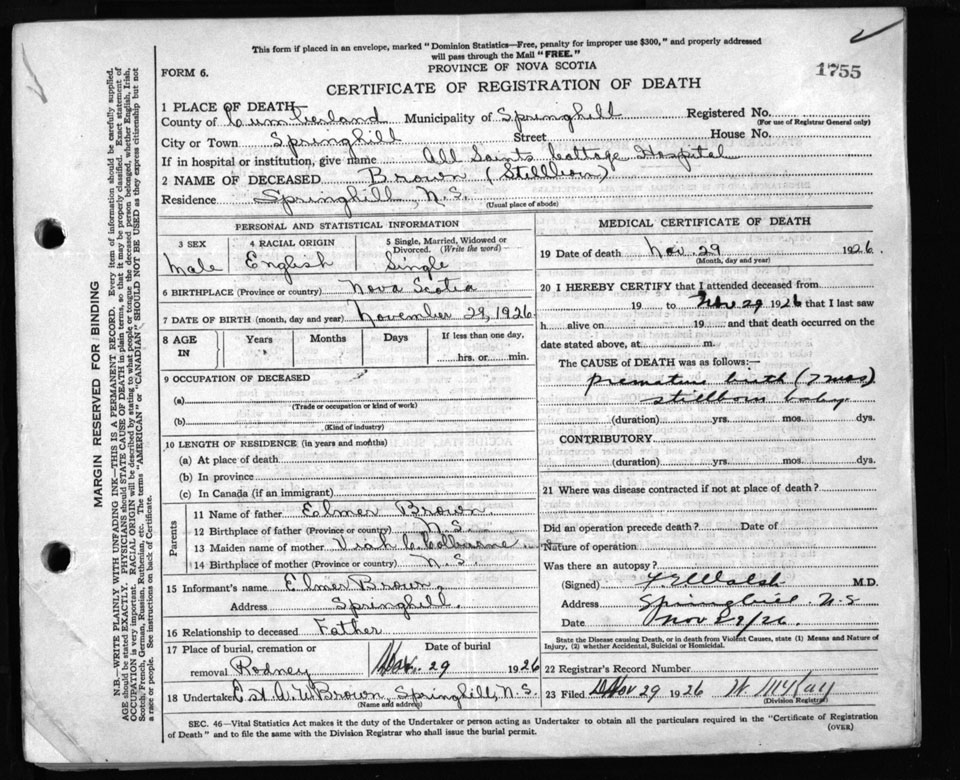 This form if placed in an envelope, marked "Dominion Statistics—Free, penalty for improper use $300," and properly addressed
will pass through the Mail "FREE."
FORM 6.
PROVINCE OF NOVA SCOTIA
1755
CERTIFICATE OF REGISTRATION OF DEATH
1 PLACE OF DEATH
County of Cumberland Municipality of Springhill Registered No.
(For use of Registrar General only)
City or Town Springhill Street House No.
If in hospital or institution, give name All Saints Cottage Hospital
2 NAME OF DECEASED Brown (Stillborn)
Residence Springhill, N.S.
(Usual place of abode)
PERSONAL AND STATISTICAL INFORMATION
3 SEX 4 RACIAL ORIGIN 5 Single, Married, Widowed or
Divorced. (Write the word)—
Male English Single
6 BIRTHPLACE (Province or country) Nova Scotia
7 DATE OF BIRTH (month, day and year) November 29, 1926
8 AGE IN Years Months Days If less than one day,
hrs. or min.
9 OCCUPATION OF DECEASED
(a)
(Trade or occupation or kind of work)
(b)
(Kind of industry)
10 LENGTH OF RESIDENCE (in years and months)
(a) At place of death
(b) In province
(c) In Canada (if an immigrant)
Parents
11 Name of father Elmer Brown
12 Birthplace of father (Province or country) N.S.
13 Maiden name of mother C.
14 Birthplace of mother (Province or country) N.S.
15 Informant's name Elmer Brown
Address Springhill.
16 Relationship to deceased Father
17 Place of burial, cremation or Date of burial
removal Rodney Nov. 29 1926
18 Undertaker Brown, Springhill, N.S.
(Name and address)
MEDICAL CERTIFICATE OF DEATH
19 Date of death Nov. 29 1926
(Month, day and year)
20 I HEREBY CERTIFY that I attended deceased from
19 to Nov 29 1926 that I last saw
h alive on 19 and that death occurred on
date stated above, at m.
The CAUSE of DEATH was as follows:—
premature birth (7 mos)
stillborn baby
(duration) yrs. mos. dys.
CONTRIBUTORY
(duration) yrs. mos. dys.
21 Where was disease contracted if not at place of death?
Did an operation precede death? Date of
Nature of operation
Was there an autopsy?
(Signed) Walsh M.D.
Address Springhill N.S
Date Nov 29/26.
State the Disease causing Death, or in death from Violent Causes, state (1) Means and Nature of
Injury, (2) whether Accidental, Suicidal or Homicidal.
22 Registrar's Record Number
23 Filed Nov 29 1926 W. McKay
(Division Registrar)
SEC. 46—Vital Statistics Act makes it the duty of the Undertaker or person acting as Undertaker to obtain all the particulars required in the "Certificate of Registration
of Death" and to file the same with the Division Registrar who shall issue the burial permit.
(OVER)
MARGIN RESERVED FOR BINDING
N.B.—WRITE PLAINLY WITH UNFADING INK—THIS IS A PERMANENT RECORD. Every item of information should be carefully supplied.
AGE should be stated EXACTLY. PHYSICIANS should STATE CAUSE OF DEATH in plain terms, so that it may be properly classified. Exact statement of
OCCUPATION is very important. RACIAL ORIGIN will be described by stating to what people or tongue the deceased person belonged, whether English, Irish,
Scotch, French, German, Russian, Ruthenian, etc. The terms "AMERICAN" or "CANADIAN" SHOULD NOT BE USED as they express citizenship but not
a race or people. See instructions on back of Certificate.